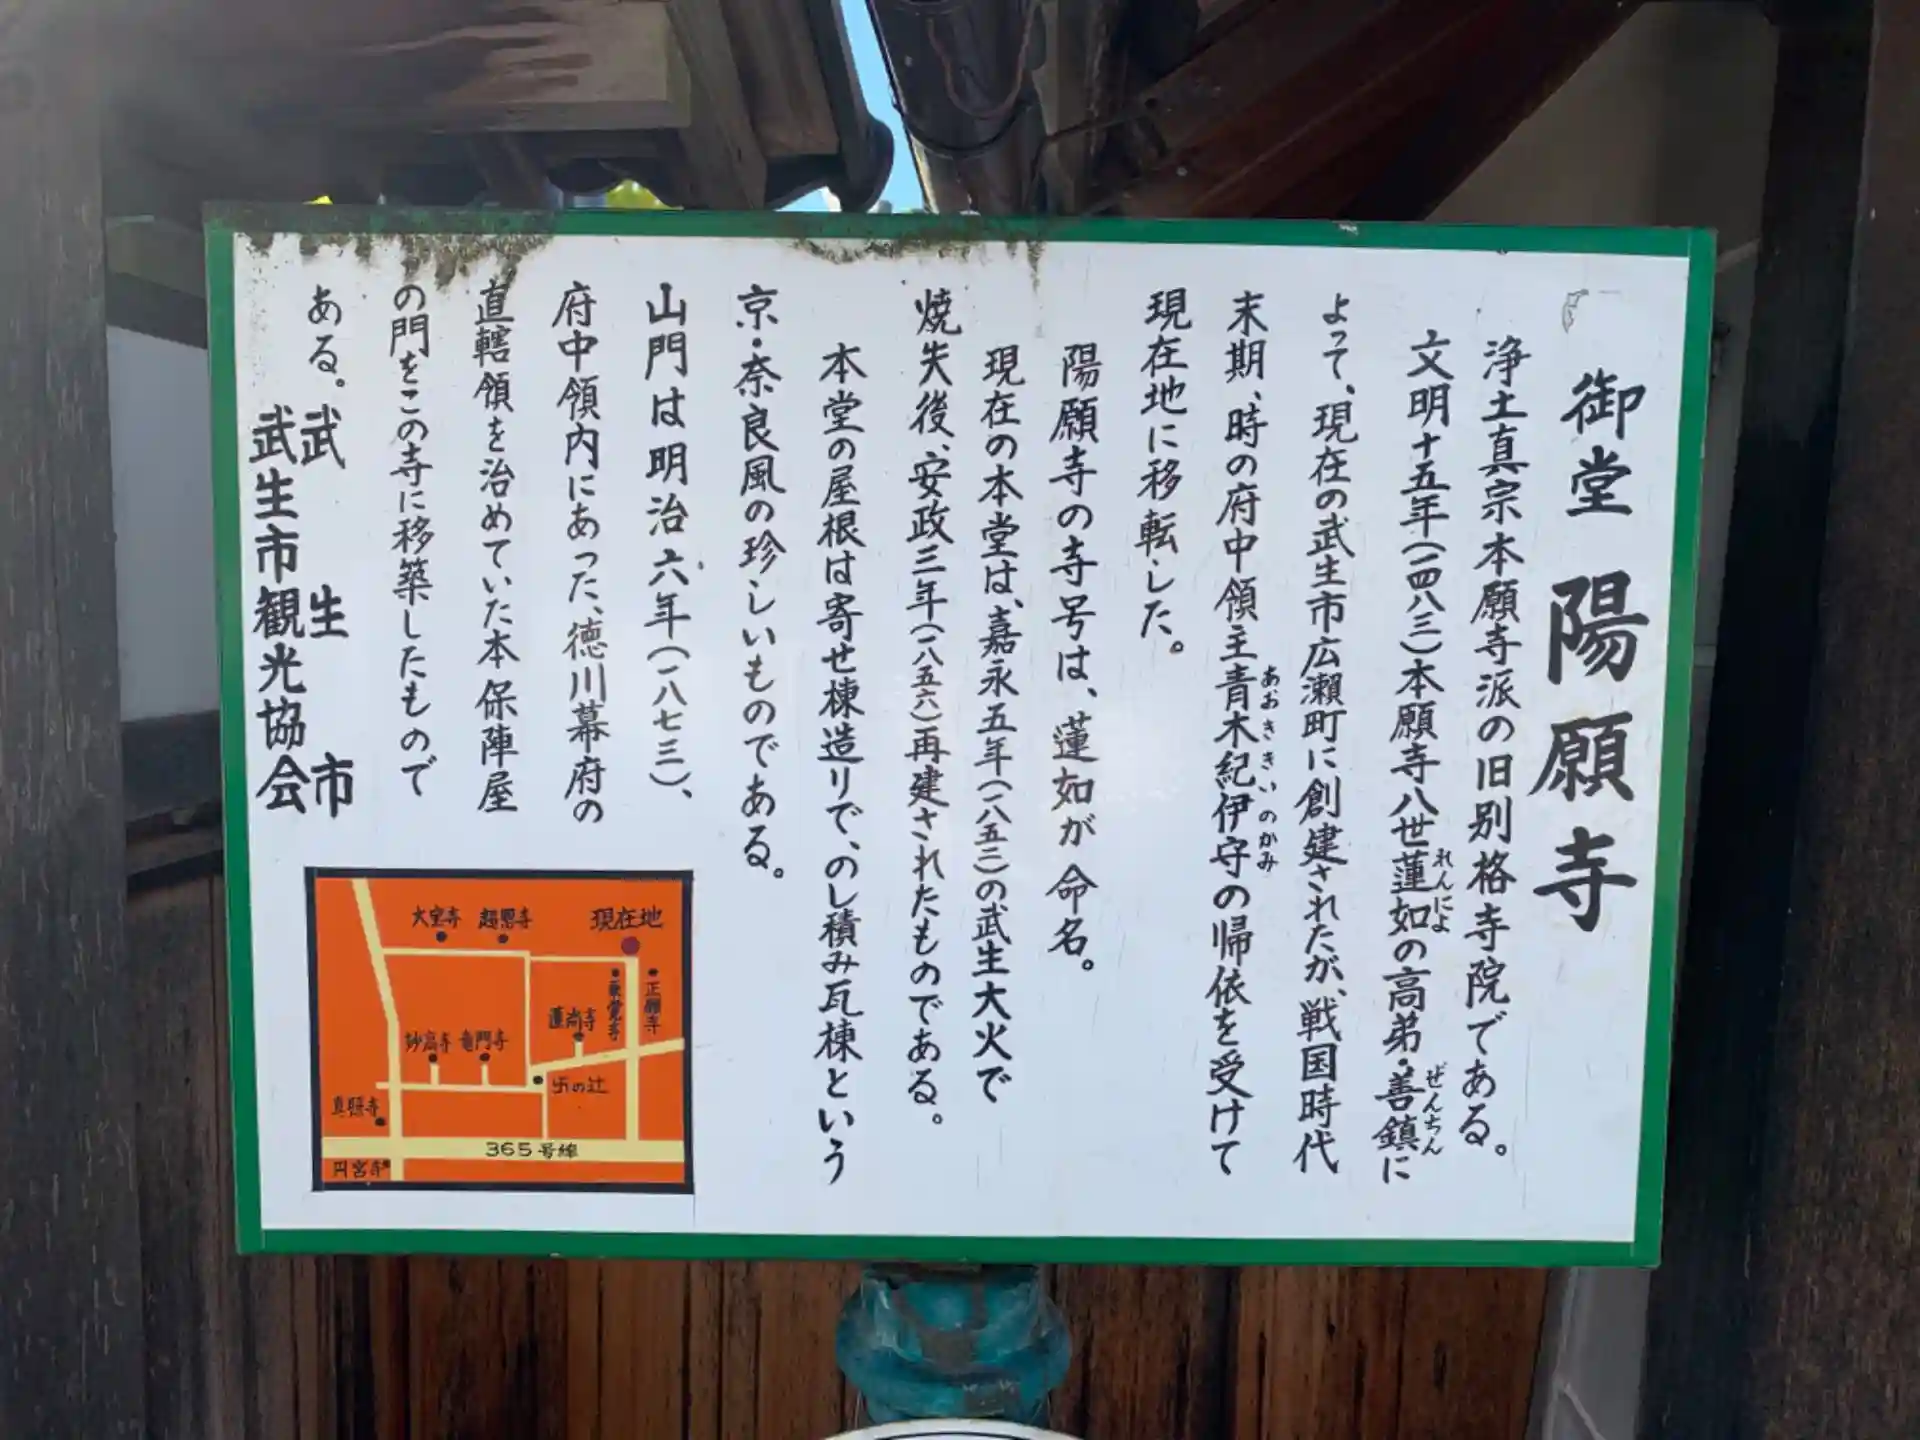 御堂 陽願寺
浄土真宗本願寺派の旧別格寺院である。
文明十五年(一四八三)本願寺八世蓮如の高弟・善鎮に
れんによ
ぜんちん
よって、現在の武生市広瀬町に創建されたが、戦国時代
末期、時の府中領主青木紀伊守の帰依を受けて
あおききいのかみ
現在地に移転した。
陽願寺の寺号は、蓮如が命名。
現在の本堂は、嘉永五年(一八五二)の武生大火で
焼失後、安政三年(一八五六)再建されたものである。
本堂の屋根は寄せ棟造りで、のし積み瓦棟という
京・奈良風の珍しいものである。
山門は明治六年(一八七三)、
府中領内にあった、徳川幕府の
直轄領を治めていた本保陣屋
の門をこの寺に移築したもので
ある。
武生市
武生市観光協会
大宝寺
超恩寺
現在地
正願寺
蓮尚寺
妙高寺
竜門寺
卍の辻
真照寺
365号線
円宮寺